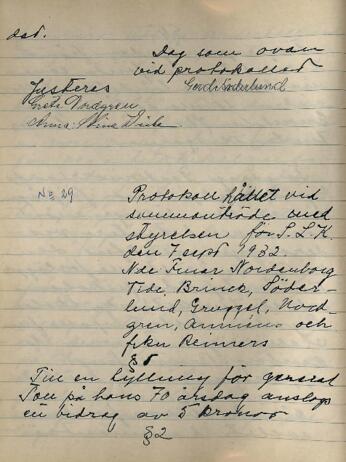 dst.
Dag som ovan
vid protokollet
Gerda Söderlund
Justeras
Greta Nordgren
Anna-Stina
No 29
Protokoll hållet vid
sammanträde med
styrelsen för S.L.K.
den 7 sept 1932.
N.de Fruar Nordenborg
Tide, Bruner, Söder-
lund, Gruggel, Nord-
gren, och
frkn Renners
§ 1
Till en hyllning för general
Tou på hans 70 årsdag anslogs
en bidrag av 5 kronor
§ 2